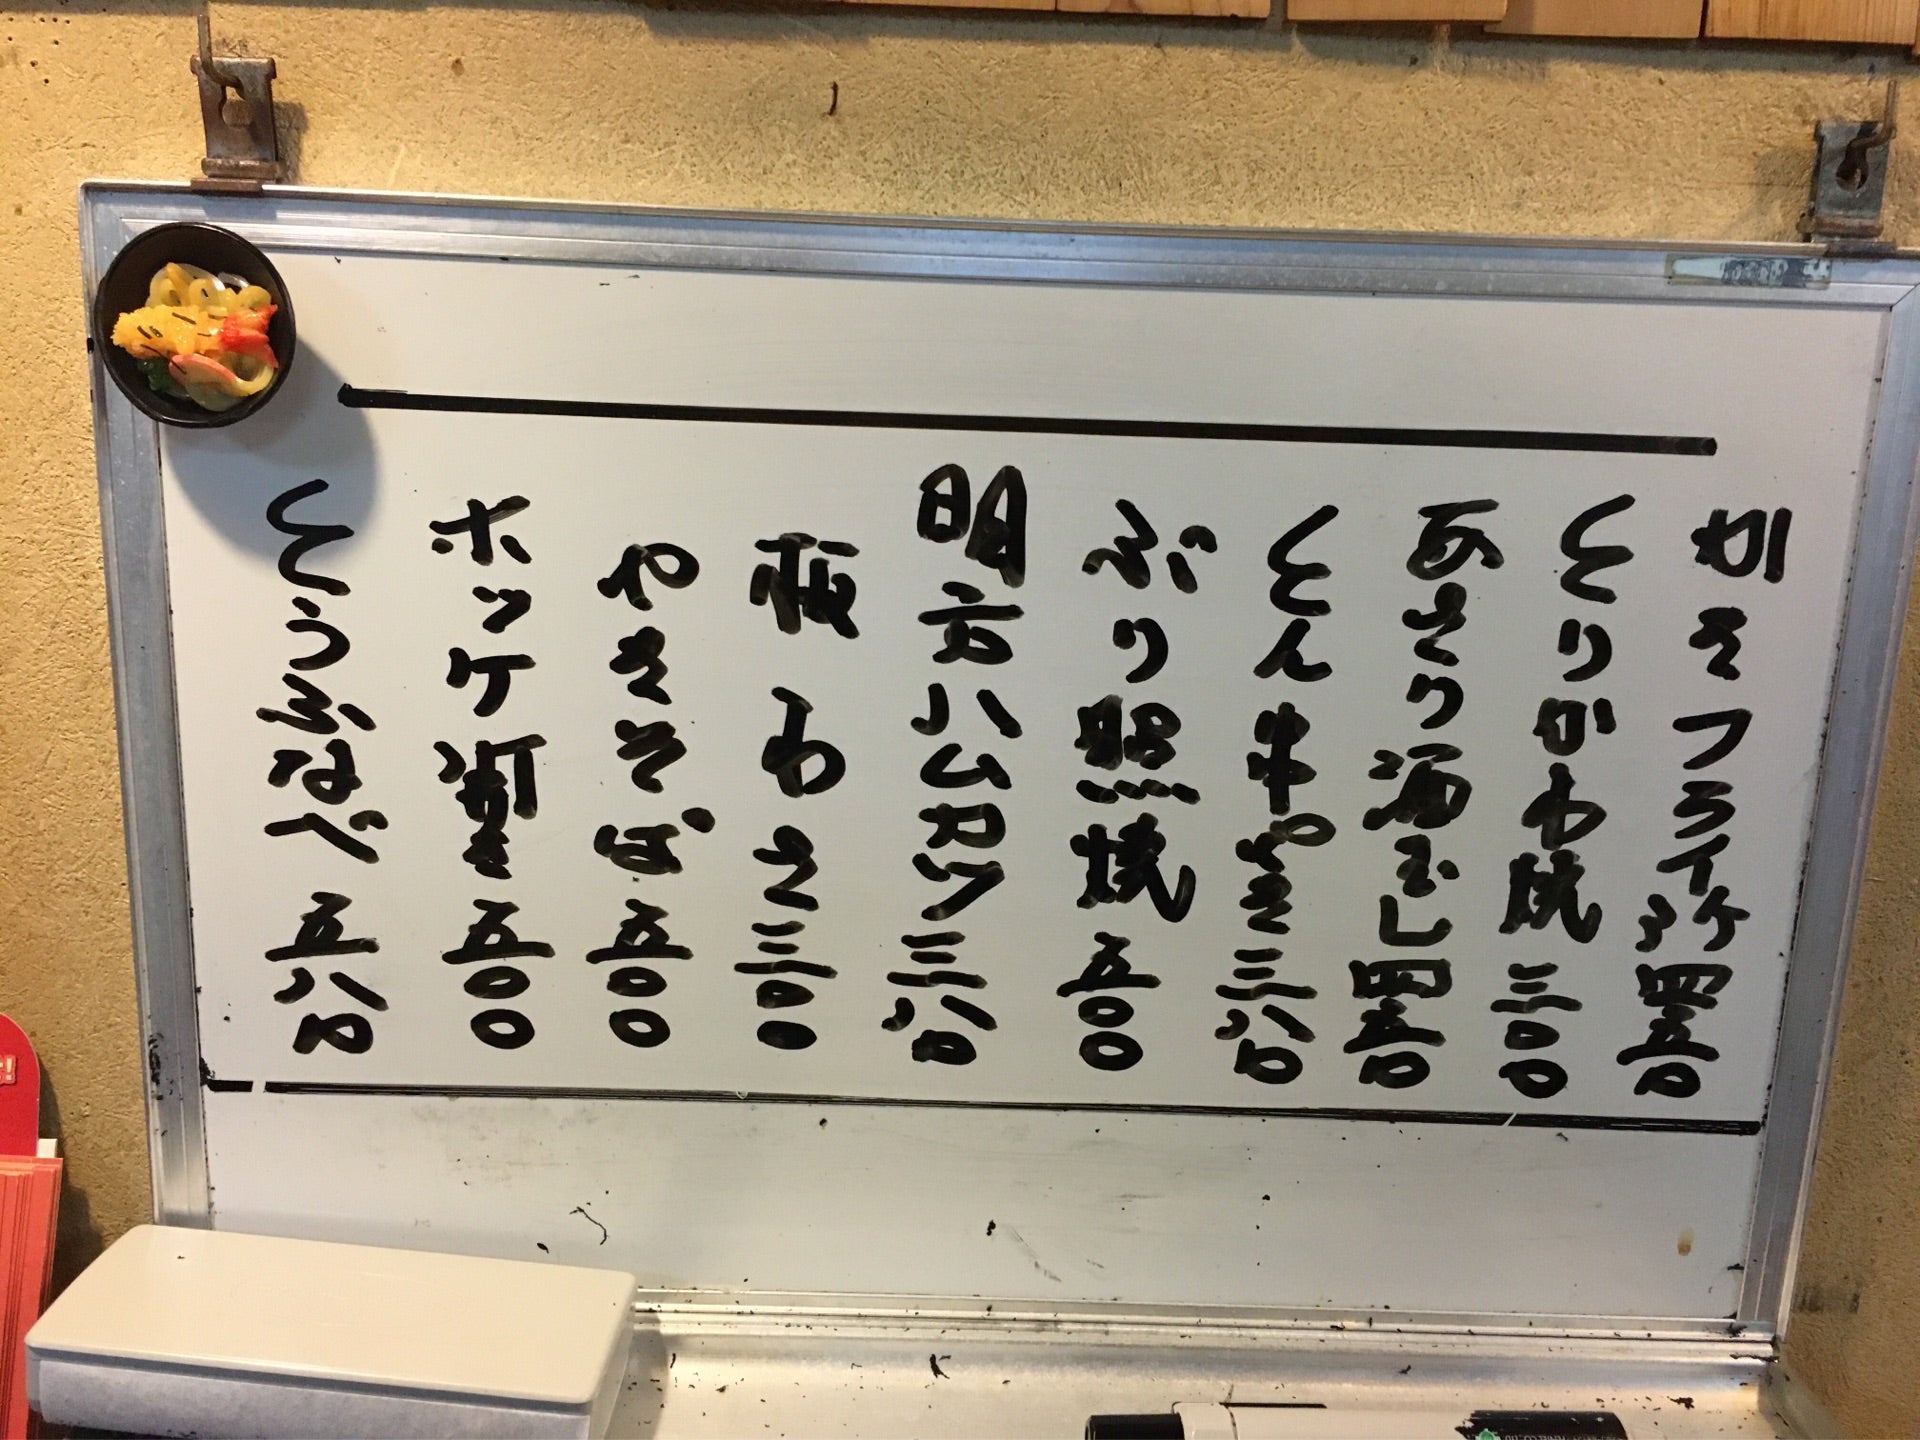 かきフライ3ケ 四五〇
とりかわ焼 三〇〇
あさり酒むし 四五〇
とん串やき 三八〇
ぶり照焼 五〇〇
明方ハムカツ 三八〇
板わさ 三〇〇
やきそば 五〇〇
ホッケ 五〇〇
とうふなべ 五八〇